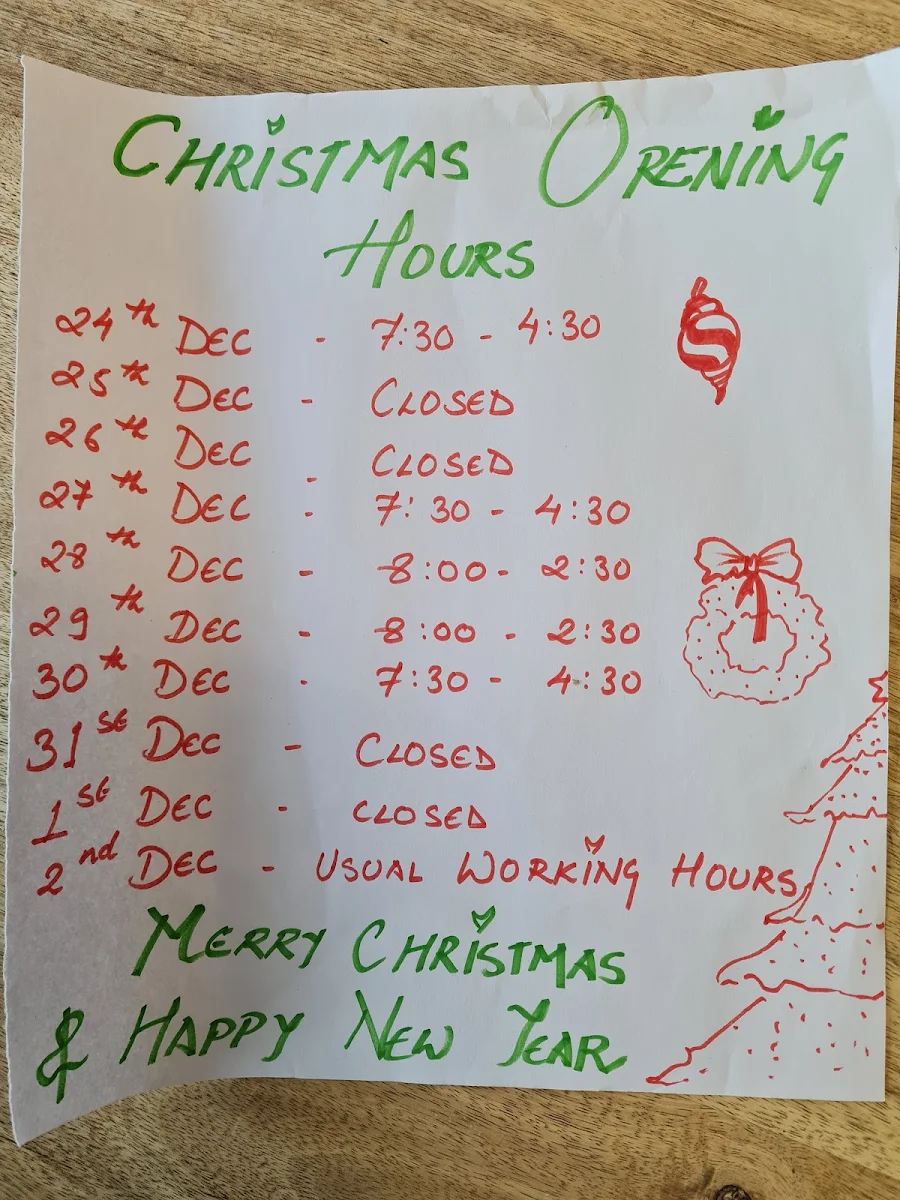 CHRISTMAS OPENING
HOURS
24th DEC - 7:30 - 4:30
25th DEC - CLOSED
26th DEC - CLOSED
27th DEC - 7:30 - 4:30
28th DEC - 8:00 - 2:30
29th DEC - 8:00 - 2:30
30th DEC - 7:30 - 4:30
31st DEC - CLOSED
1st DEC - CLOSED
2nd DEC - USUAL WORKING HOURS
MERRY CHRISTMAS
& HAPPY NEW YEAR